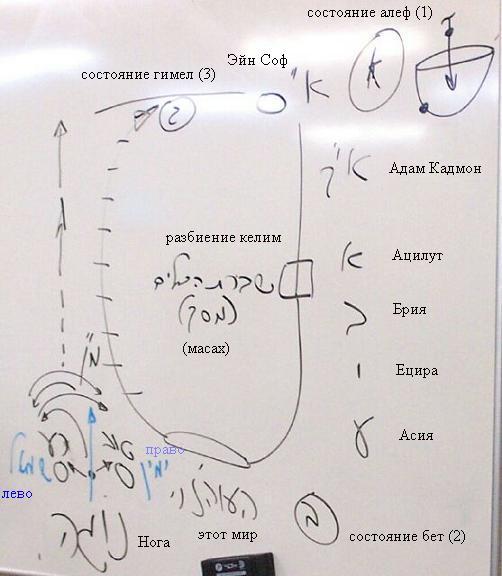 состояние алеф (1)
Эйн Соф
состояние гимел (3)
א"ס
א
ג
א"ק
Адам Кадмон
разбиение келим
שבירת הכלים
(מסך)
(масах)
א
Ацилут
ב
Брия
י
Ецира
ע
Асия
מ"ן
רע
טוב
право
שמאל
ימין
лево
העוה"ז
נוגה
Нога
этот мир
ב
состояние бет (2)